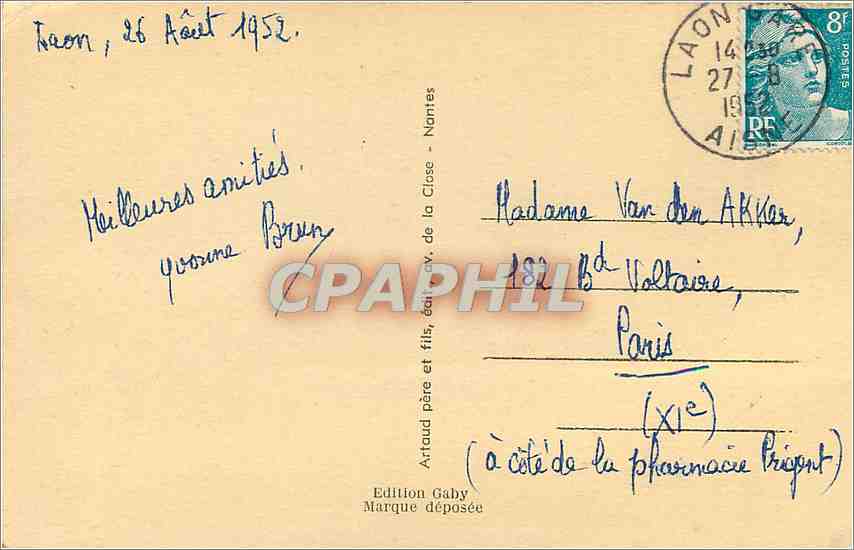 Laon, 26 Août 1952.
Meilleures amitiés.
Yvonne Brun
Artaud père et fils, édit., av. de la Close - Nantes
Edition Gaby
Marque déposée
LAON GARE
14
27 8
1952
AISNE
8F
POSTES
RF
Madame Van den AKKar,
182 Bd Voltaire,
Paris
(XIe)
(à côté de la pharmacie Prigent)
CPAPHIL